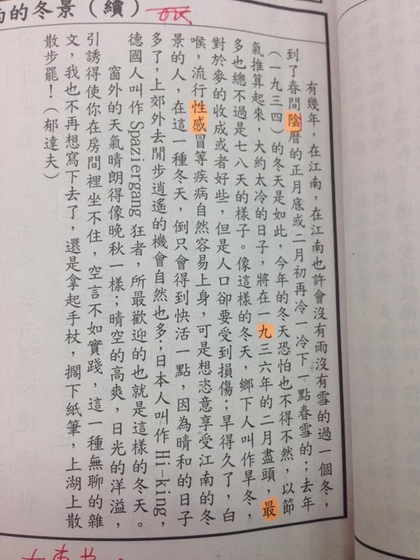 的冬景(續)
有幾年,在江南,在江南也許會沒有雨沒有雪的過一個冬,
到了春間陰曆的正月底或二月初再冷一冷下一點春雪的;去年
(一九三四)的冬天是如此,今年的冬天恐怕也不得不然,以節
氣推算起來,大約太冷的日子,將在一九三六年的二月盡頭,最
多也總不過是七八天的樣子。像這樣的冬天,鄉下人叫作旱冬,
對於麥的收成或者好些,但是人口卻要受到損傷;旱得久了,白
喉,流行性感冒等疾病自然容易上身,可是想恣意享受江南的冬
景的人,在這一種冬天,倒只會得到快活一點,因為晴和的日子
多了,上郊外去閒步逍遙的機會自然也多;日本人叫作Hi-king,
德國人叫作Spaziergang狂者,所最歡迎的也就是這樣的冬天。
窗外的天氣晴朗得像晚秋一樣;晴空的高爽,日光的洋溢,
引誘得使你在房間裡坐不住,空言不如實踐,這一種無聊的雜
文,我也不再想寫下去了,還是拿起手杖,擱下紙筆,上湖上散
散步罷!(郁達夫)